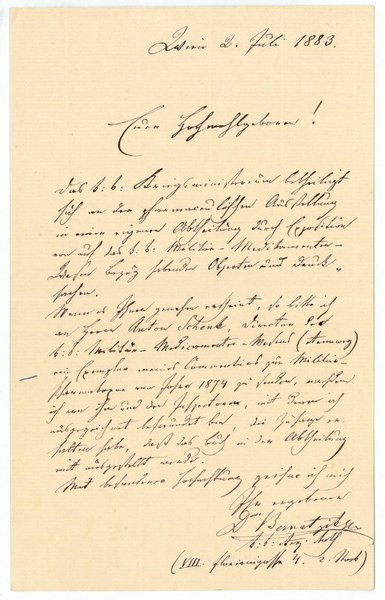 Wien 2. Juli 1883.
Euer Hochwohlgeboren!
Das k. k. Kriegsministerium betheiligt
sich an der pharmaceutischen Ausstellung
in einer eigenen Abtheilung durch Exposition
von auf das k. k. Militär-Medikamenten-
Wesen bezug habenden Objecten und Druck-
sachen.
Wenn es Ihnen genehm erscheint, so bitte ich
an Herrn Anton Schenk, Director des
k. k. Militär-Medicamenten-Wesens
ein Exemplar meines Commentars zur Militär-
Pharmakopoe vom Jahre 1874 zu senden, nachdem
ich von ihm und den Inspectoren, mit denen ich
ausgezeichnet befreundet bin, die Zusage er-
halten habe, daß das Buch in der Abtheilung
mit ausgestellt werde.
Mit besonderer Hochachtung zeichne ich mich
Ihr ergebener
Dr Bernatzik
k. k.
(VIII. Floriangasse 4. 2. Stock)